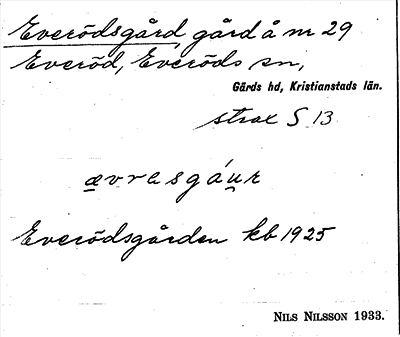 Everödsgård, gård å nr 29
Everöd, Everöds sn,
Gärds hd, Kristianstads län.
strax S 13
ævrasgáuʀ
Everödsgården kb 1925
NILS NILSSON 1933.